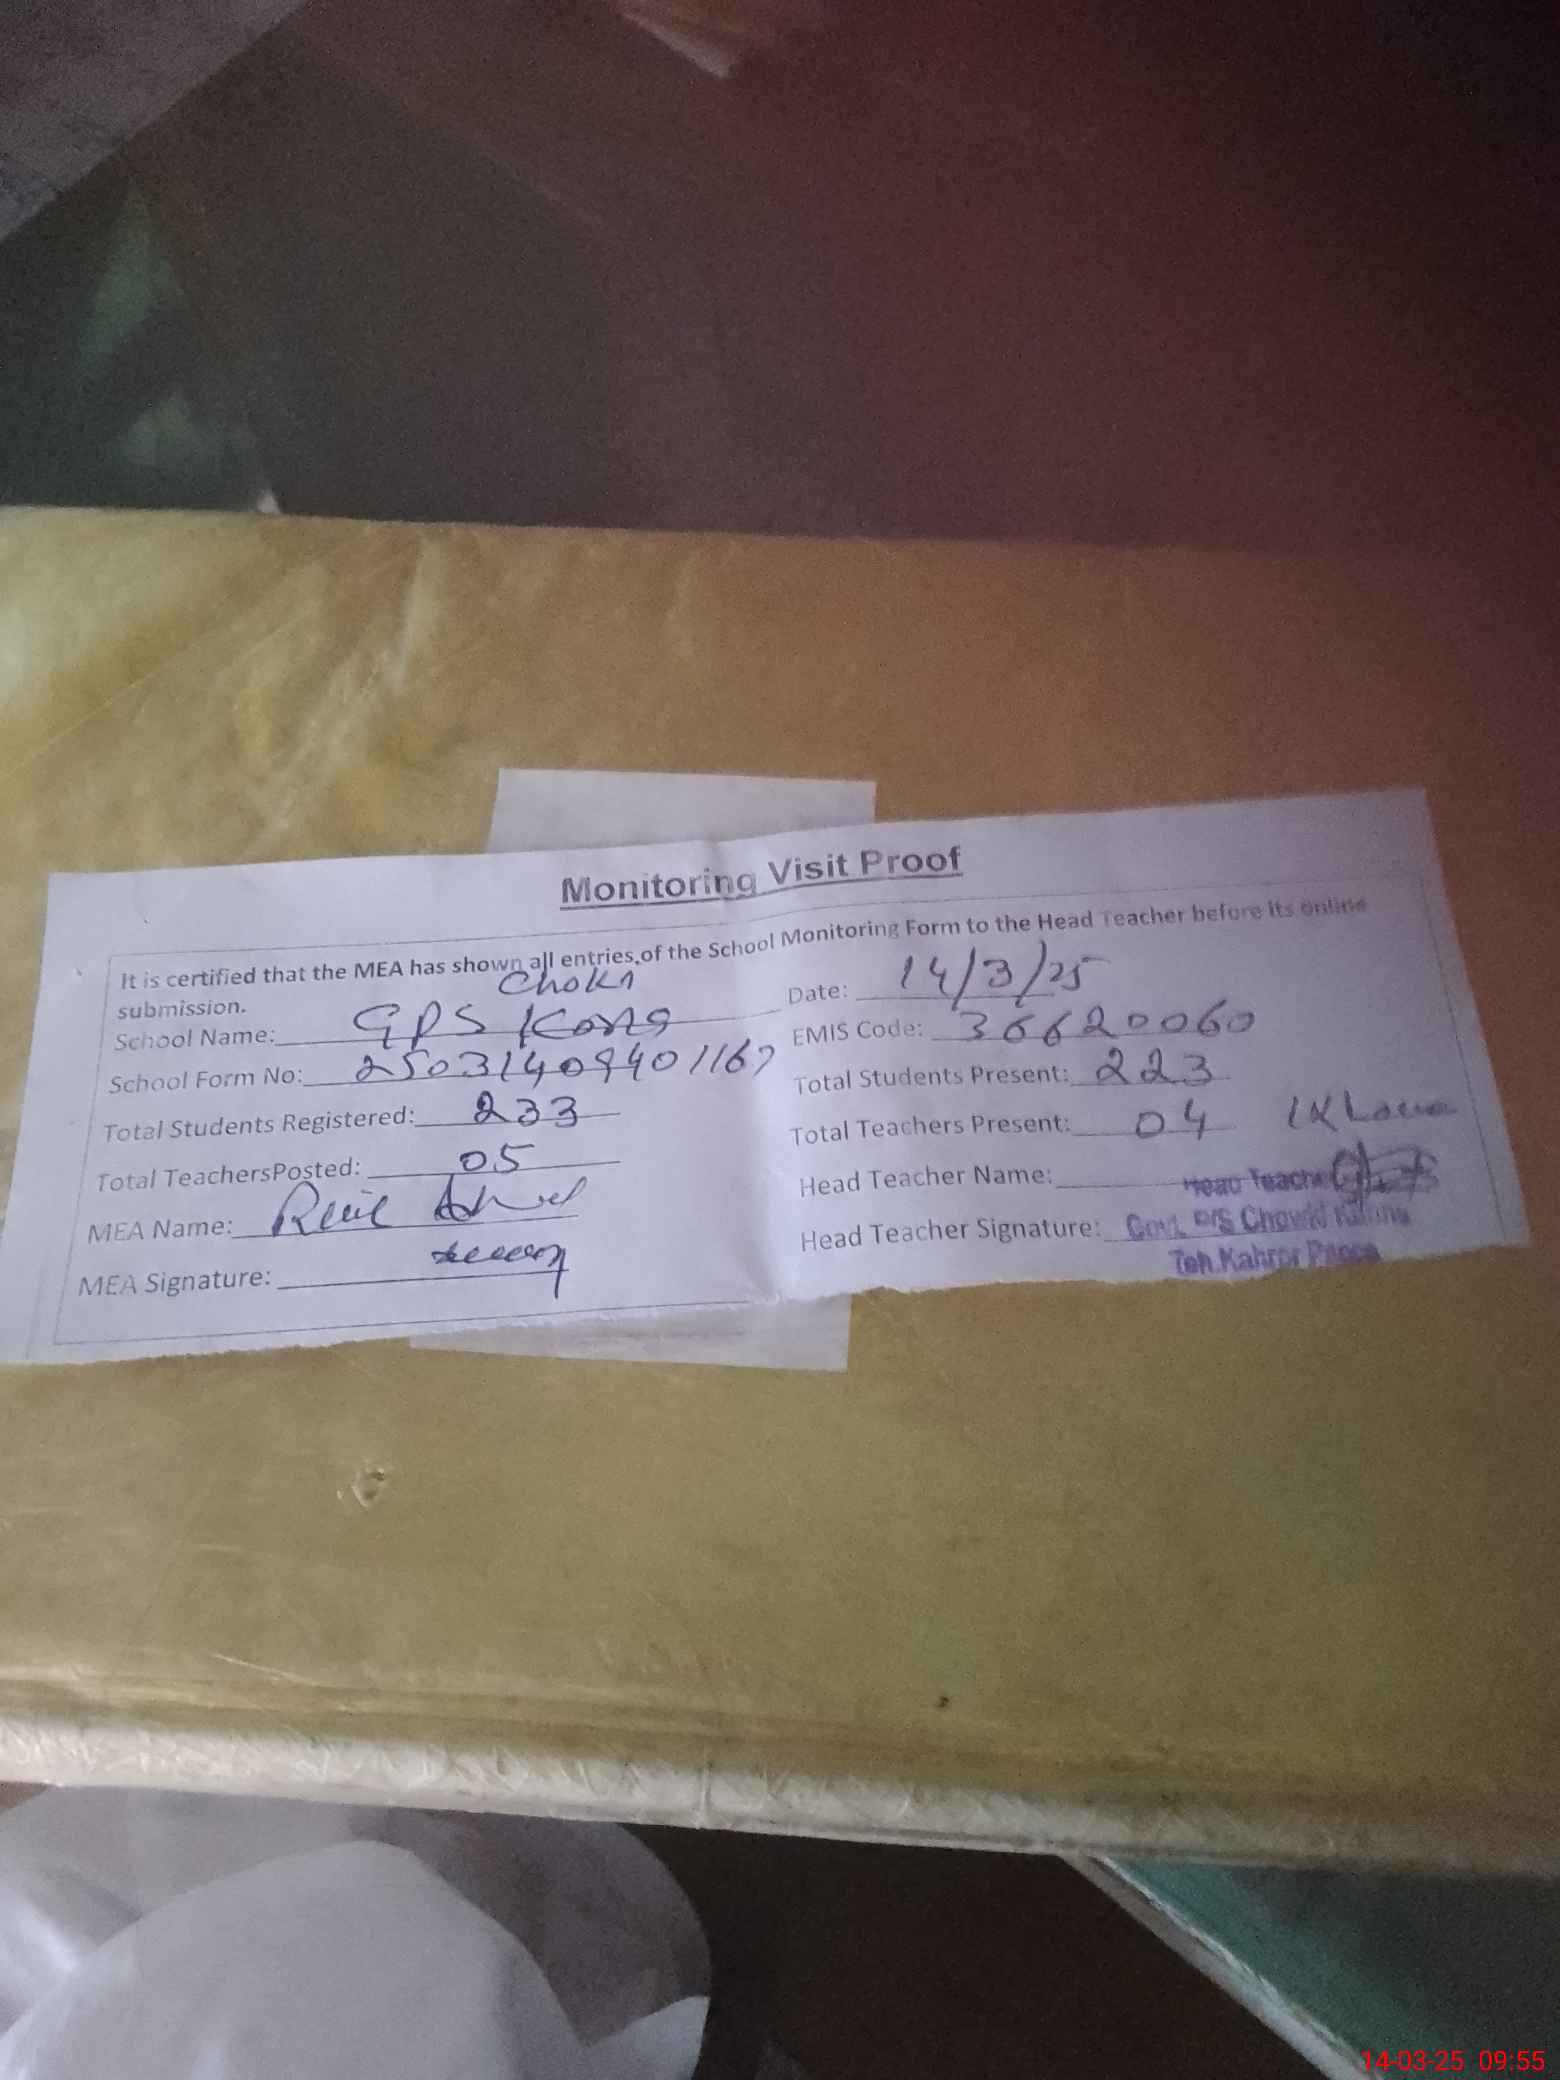 Monitoring Visit Proof
It is certified that the MEA has shown all entries of the School Monitoring Form to the Head Teacher before its online
submission.
Date: 14/3/25
School Name: GPS
EMIS Code: 36620060
School Form No:
Total Students Present: 223
Total Students Registered: 233
Total Teachers Present: 04
Total TeachersPosted: 05
Head Teacher Name:
MEA Name:
Head Teacher Signature:
MEA Signature:
Head Teacher
Govt. P/S Chowki
Teh. Kahror
14-03-25 09:55